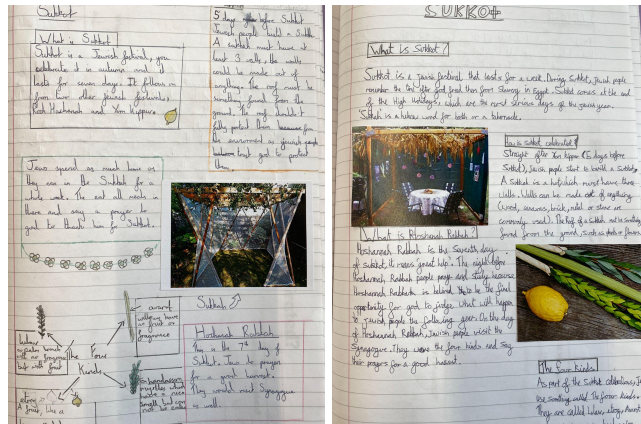 Sukkot
What is Sukkot
Sukkot is a Jewish festival, you
celebrate it in autumn and it
lasts for seven days. It follows on
from two other Jewish festivals,
Rosh Hashanah and Yom Kippur.
5 days before Sukkot
Jewish people build a Sukkah
A sukkah must have at
least 3 walls, the walls
could be made out of
anything. The roof must be
something found from the
ground. The roof shouldn't
fully protect them from
the environment as Jewish people
trust god to protect
them.
Jews spend as much time as
they can in the Sukkah for a
whole week. The eat all meals in
there and say a prayer to
god to thank him for Sukkot.
Sukkah
The Four
Kinds
Hoshanah Rabbah
This is the 7th day of
Sukkot. Jews to prayers
for a good harvest.
They would meet Synagogue
as well.
SUKKOt
What is Sukkot?
Sukkot is a Jewish festival that lasts for a week. During Sukkot, Jewish people
remember the time after God freed them from slavery in Egypt. Sukkot comes at the end
of the High Holidays, which are the most serious days of the Jewish year.
Sukkah is a hebrew word for booth or a tabernacle.
How is sukkot celebrated?
Straight after Yom Kippur (5 days before
Sukkot), Jewish people start to build a Sukkah.
A Sukkah is a hut, which must have three
walls. Walls can be made out of anything
(wood, canvas, brick, metal or stone are
commonly used). The roof of a Sukkah must be something
found from the ground, such as
What is Hoshanah Rabbah?
Hoshannah Rabbah is the seventh day
of sukkot. It means 'great help'. The night before
Hoshannah Rabbah people pray and study because
Hoshannah Rabbah is believed to be the final
opportunity for god to judge what will happen
to Jewish people the following year. On the day
of Hoshannah Rabbah, Jewish people visit the
Synagogue. They wave the four kinds and say
their prayers for a good harvest.
The four kinds
As part of the Sukkot celebrations, J
use something called The four kinds.
They are called lulav, etrog,